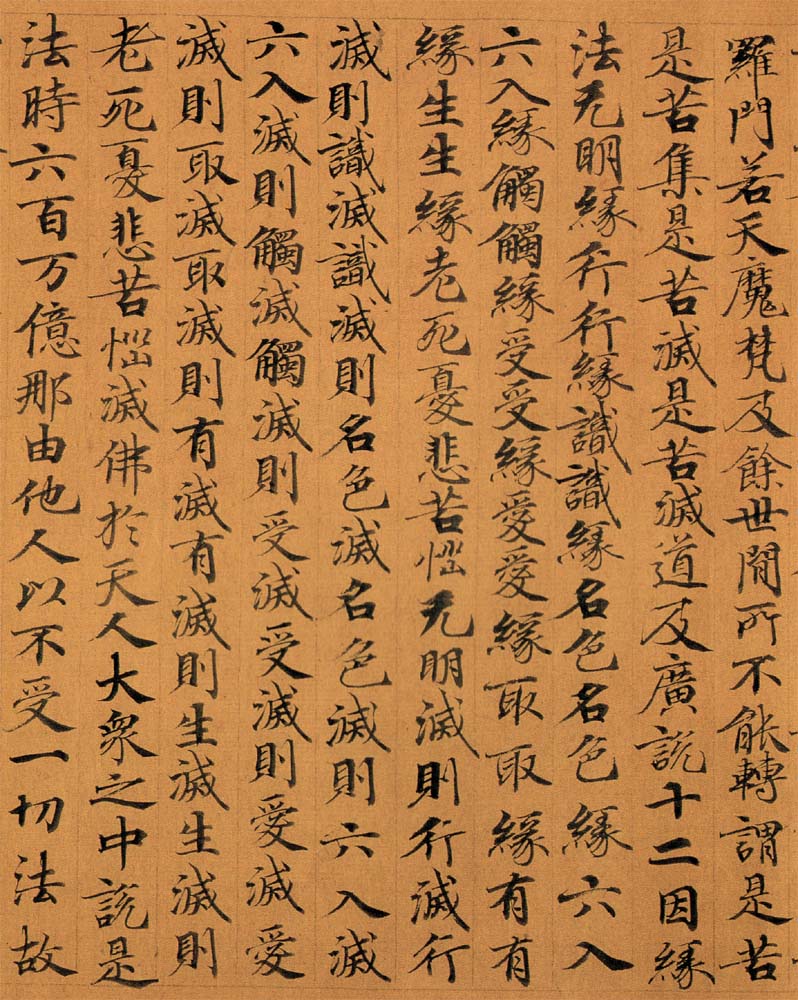 羅門若天魔梵及餘世間所不能轉謂是苦
是苦集是苦滅是苦滅道及廣說十二因緣
法无明緣行行緣識識緣名色名色緣六入
六入緣觸觸緣受受緣愛愛緣取取緣有有
緣生生緣老死憂悲苦惱无明滅則行滅行
滅則識滅識滅則名色滅名色滅則六入滅
六入滅則觸滅觸滅則受滅受滅則愛滅愛
滅則取滅取滅則有滅有滅則生滅生滅則
老死憂悲苦惱滅佛於天人大眾之中說是
法時六百万億那由他人以不受一切法故